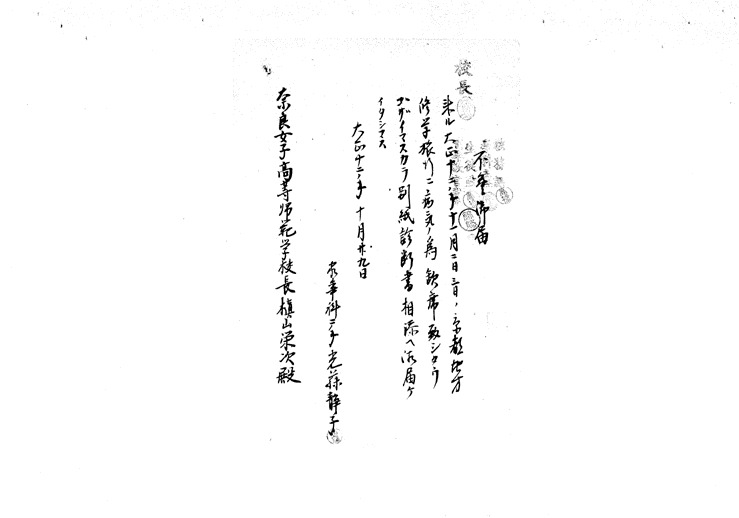 校長
不参御届
来ル大正十二年十一月二日三日ノ京都地方
修学旅行ニ病気ノ為欠席致シタウ
ゴザイマスカラ別紙診断書相添ヘ御届ケ
イタシマス
大正十二年十月廿九日
家事科二年
静子
奈良女子高等師範学校長槙山栄次殿